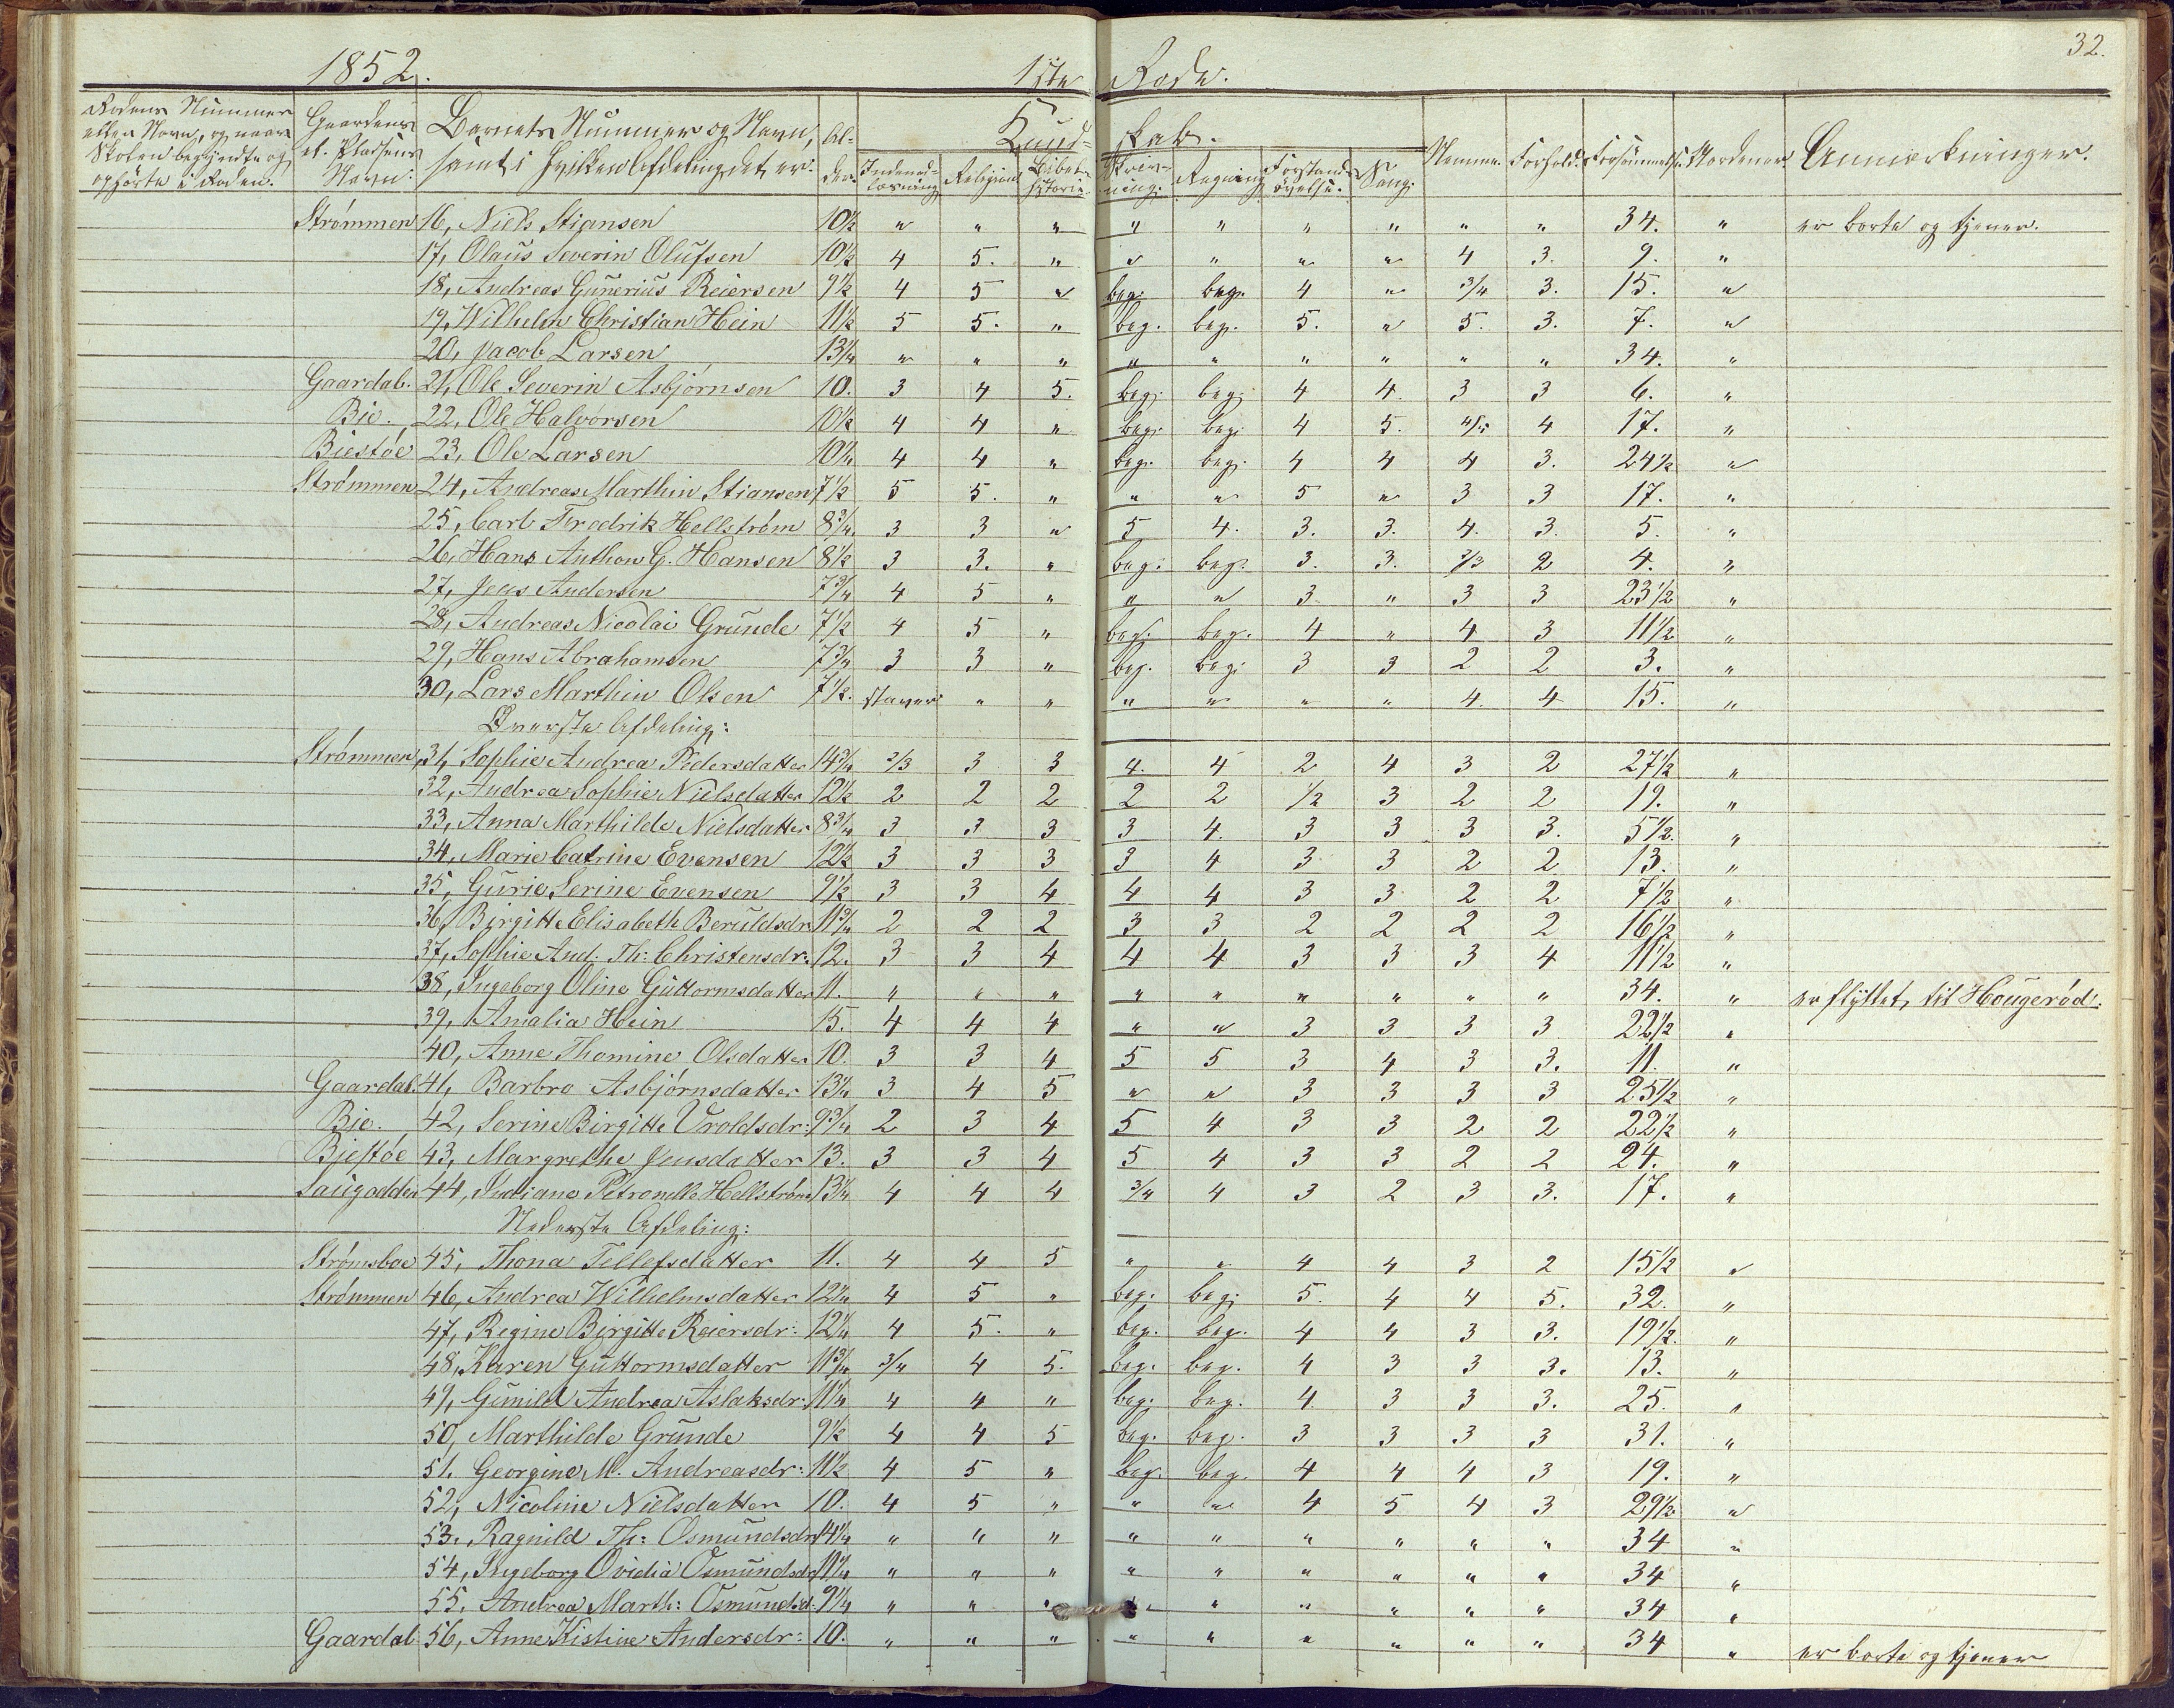 32.
1852. 1ste Rode.
Rodens Nummer eller Navn, og naar Skolen begyndte og ophørte i Roden. Gaardens el. Pladsens Navn. Barnets Nummer og Navn, samt i hvilken Afdeling det er. Al- der. Kund- skab. Nemme. Forhold. Forsømmelse. Anmærkninger.
Indenad- læsning Religion Bibel- historie. Skriv- ning. Regning Forstands- øvelse. Sang.
Strømmen 16, Niels Stiansen 10½ " " " " " " " " " 34. " er borte og tjener.
17, Olaus Severin Olufsen 10½ 4 5. " " " " " 4 3. 9. "
18, Andreas Gunerius Reiersen 9½ 4 5 " beg. beg. 4 " 3/4 3. 15. "
19, Wilhelm Christian Hein 11½ 5 5. " beg. beg. 5. " 5. 3. 7. "
20, Jacob Larsen 13¼ " " " " " " " " " 34. "
Gaardal. 21, Ole Severin Asbjørnsen 10. 3 4 5. beg. beg. 4 4. 3 3 6. "
Bie. 22, Ole Halvorsen 10½ 4 4 " beg. beg. 4 5. 4/5 4 17. "
Biestøe 23, Ole Larsen 10¼ 4 4 " beg. beg. 4 4 4 3. 24½ "
Strømmen 24, Andreas Marthin Stiansen 7½ 5 5. " " " 5 " 3 3 17. "
25, Carl Fredrik Hellstrøm 8¾. 3 3 " 5 4. 3. 3. 4. 3. 5. "
26, Hans Anthon G. Hansen 8½ 3 3. " beg. beg. 3. 3. 2/3 2 4. "
27, Jens Andersen 7¾ 4 5 " " " 3 " 3 3 23½ "
28, Andreas Nicolai Grunde 7½ 4 5 " beg. beg. 4 " 4 3 11½ "
29, Hans Abrahamsen 7¾ 3 3 " beg. beg. 3 3 2 2 3. "
30, Lars Marthin Olsen 7½. staver " " " " " " 4. 4 15. "
Øverste Afdeling:
Strømmen, 31, Sophie Andrea Pedersdatter 14¾ 2/3 3 3 4. 4 2 4 3 2 27½ "
32, Andrea Sophie Nielsdatter 12½ 2 2 2 2 2 ½ 3 2 2 19. "
33, Anna Marthilde Nielsdatter 8¾ 3 3 3 3 4. 3 3 3 3. 5½. "
34, Marie Catrine Evensen 12½ 3 3 3 3 4 3 3 2 2 13. "
35, Gurie Serine Evensen 9½ 3 3 4 4 4 3 3. 2 2 7½ "
36, Birgitte Elisabeth Beruldsdr. 11¾ 2 2 2 3 3 2 2 2 2 16½ "
37, Sophie And. Th: Christensdr. 12. 3 3 4 4 4 3 3 3 4 11½ "
38, Ingeborg Oline Guttormsdatter 11. " " " " " " " " " 34. " er flyttet, til Hougerød.
39, Amalia Hein 15. 4 4 4 " " 3 3 3 3 22½ "
40, Anne Thomine Olsdatter 10. 3 3 4 5 5 3 4 3 3. 11. "
Gaardal. 41, Barbro Asbjørnsdatter 13¼ 3 4 5 " " 3 3 3 3 25½ "
Bie. 42, Serine Birgitte Vroldsdr: 9¾ 2 3 4 5 4 3 3 2 2 22½ "
Biestøe 43, Margrethe Jensdatter 13. 3 3 4 5 4 3 3 2 2 24. "
Saugodden 44, Indiane Petronelle Hellstrøm 13¼ 4 4 4 3/4 4 3 2 3 3. 17. "
Nederste Afdeling:
Strømsboe 45, Thona Tellefsdatter 11. 4 4 5 " " 4 4 3 2 15½ "
Strømmen 46, Andrea Wilhelmsdatter 12¼ 4 5 " beg. beg. 5. 4 4 5. 32. "
47, Regine Birgitte Reiersdr: 12¼ 4 5. " beg. beg. 4 4 3 3. 19½. "
48, Karen Guttormsdatter 11¾ 3/4 4 5. beg. beg. 4 3 3 3. 13. "
49, Gunild Andrea Aslaksdr: 11¼ 4 4 " beg. beg. 4. 3 3 3. 25. "
50, Marthilde Grunde 9½ 4 4 5 beg. beg. 3 3 3 3 31. "
51. Georgine M. Andreasdr: 11½ 4 5 " beg. beg. 4 4 4 3 19. "
52, Nicoline Nielsdatter 10. 4 5 " " " 4 5 4 3 29½ "
53. Ragnild Th: Osmundsdr. 14¼ " " " " " " " " " 34 "
54, Ingeborg Ovidia Osmundsdr. 11¼ " " " " " " " " " 34 "
55, Andrea Marth: Osmundsd: 9¼ " " " " " " " " " 34 "
Gaardal 56, Anne Kistine Andersdr: 10. " " " " " " " " " 34 " er borte og tjener